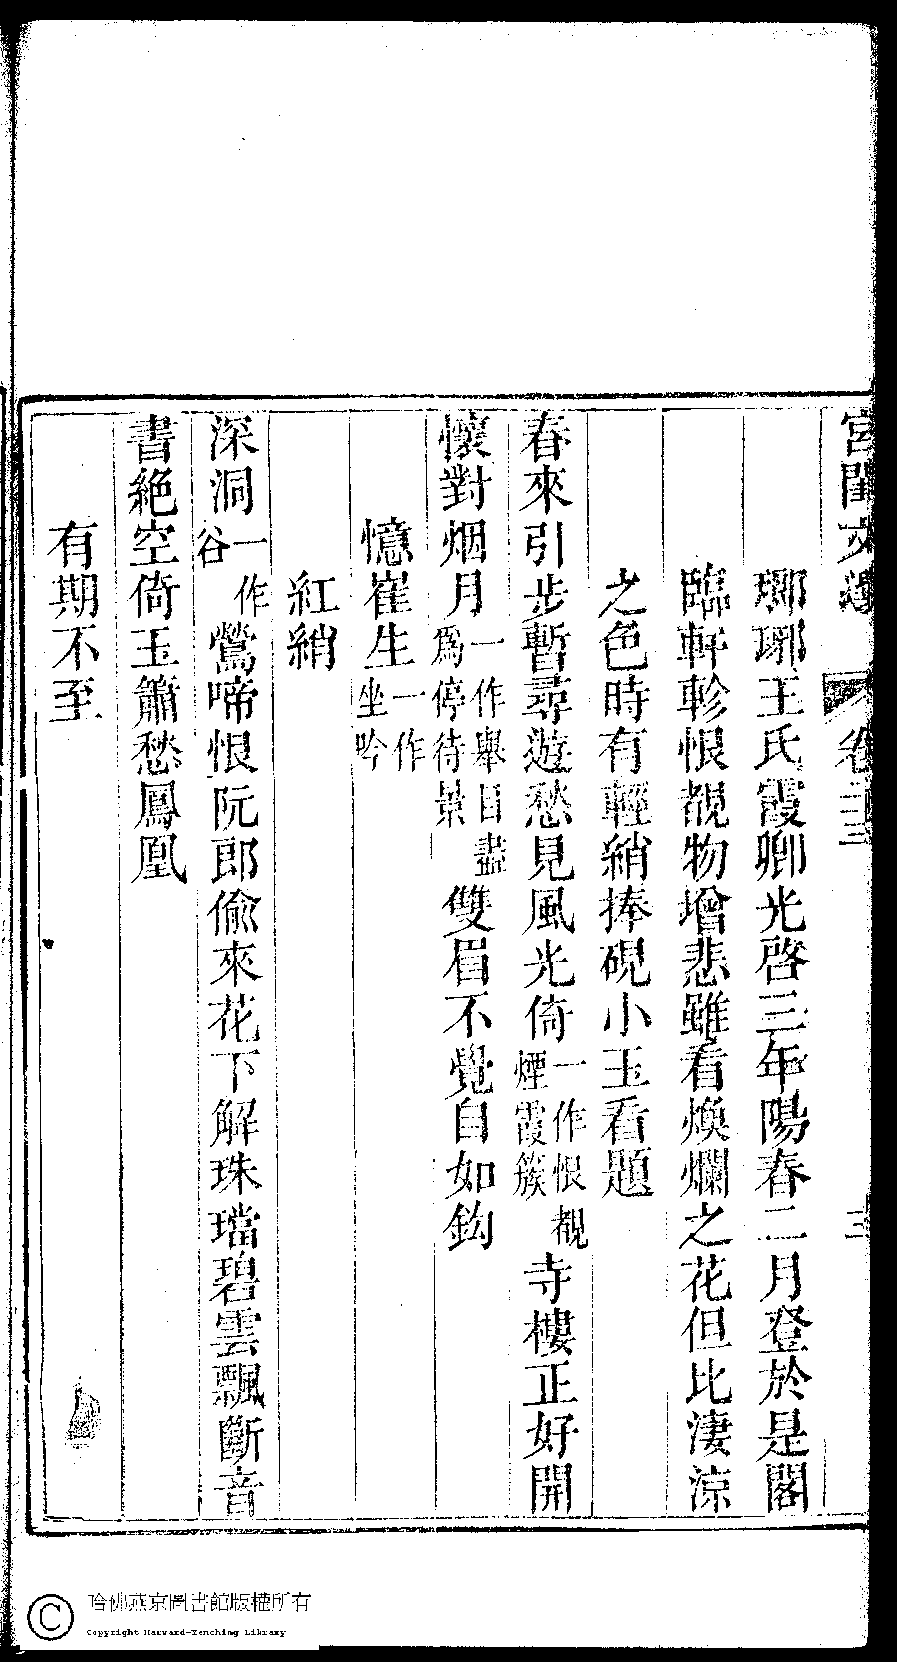 宮閨文選 卷二十三 三
瑯琊王氏霞卿光啓三年陽春二月登於是閣
臨軒軫恨覩物增悲雖看煥爛之花但比淒涼
之色時有輕綃捧硯小玉看題
春來引步暫尋遊愁見風光倚一作恨覩煙霞簇寺樓正好開
懷對烟月一作舉目盡爲停待景雙眉不覺自如鈎
憶崔生一作坐吟
紅綃
深洞一作谷鶯啼恨阮郎偷來花下解珠璫碧雲飄斷音
書絕空倚玉簫愁鳳凰
有期不至
哈佛燕京圖書館版權所有
Copyright Harvard-Yenching Library